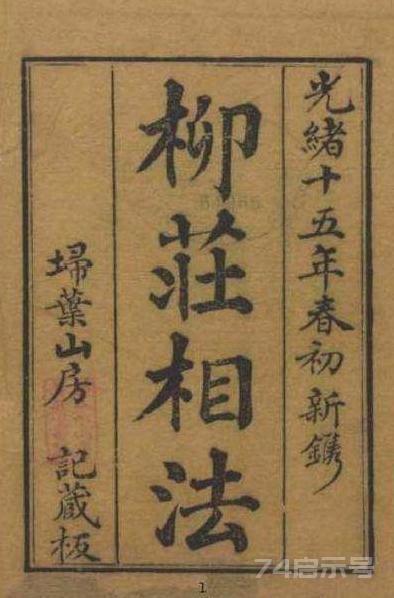 光緒十五年春初新鐫
柳莊相法
埽葉山房 記藏板
1
74启示号